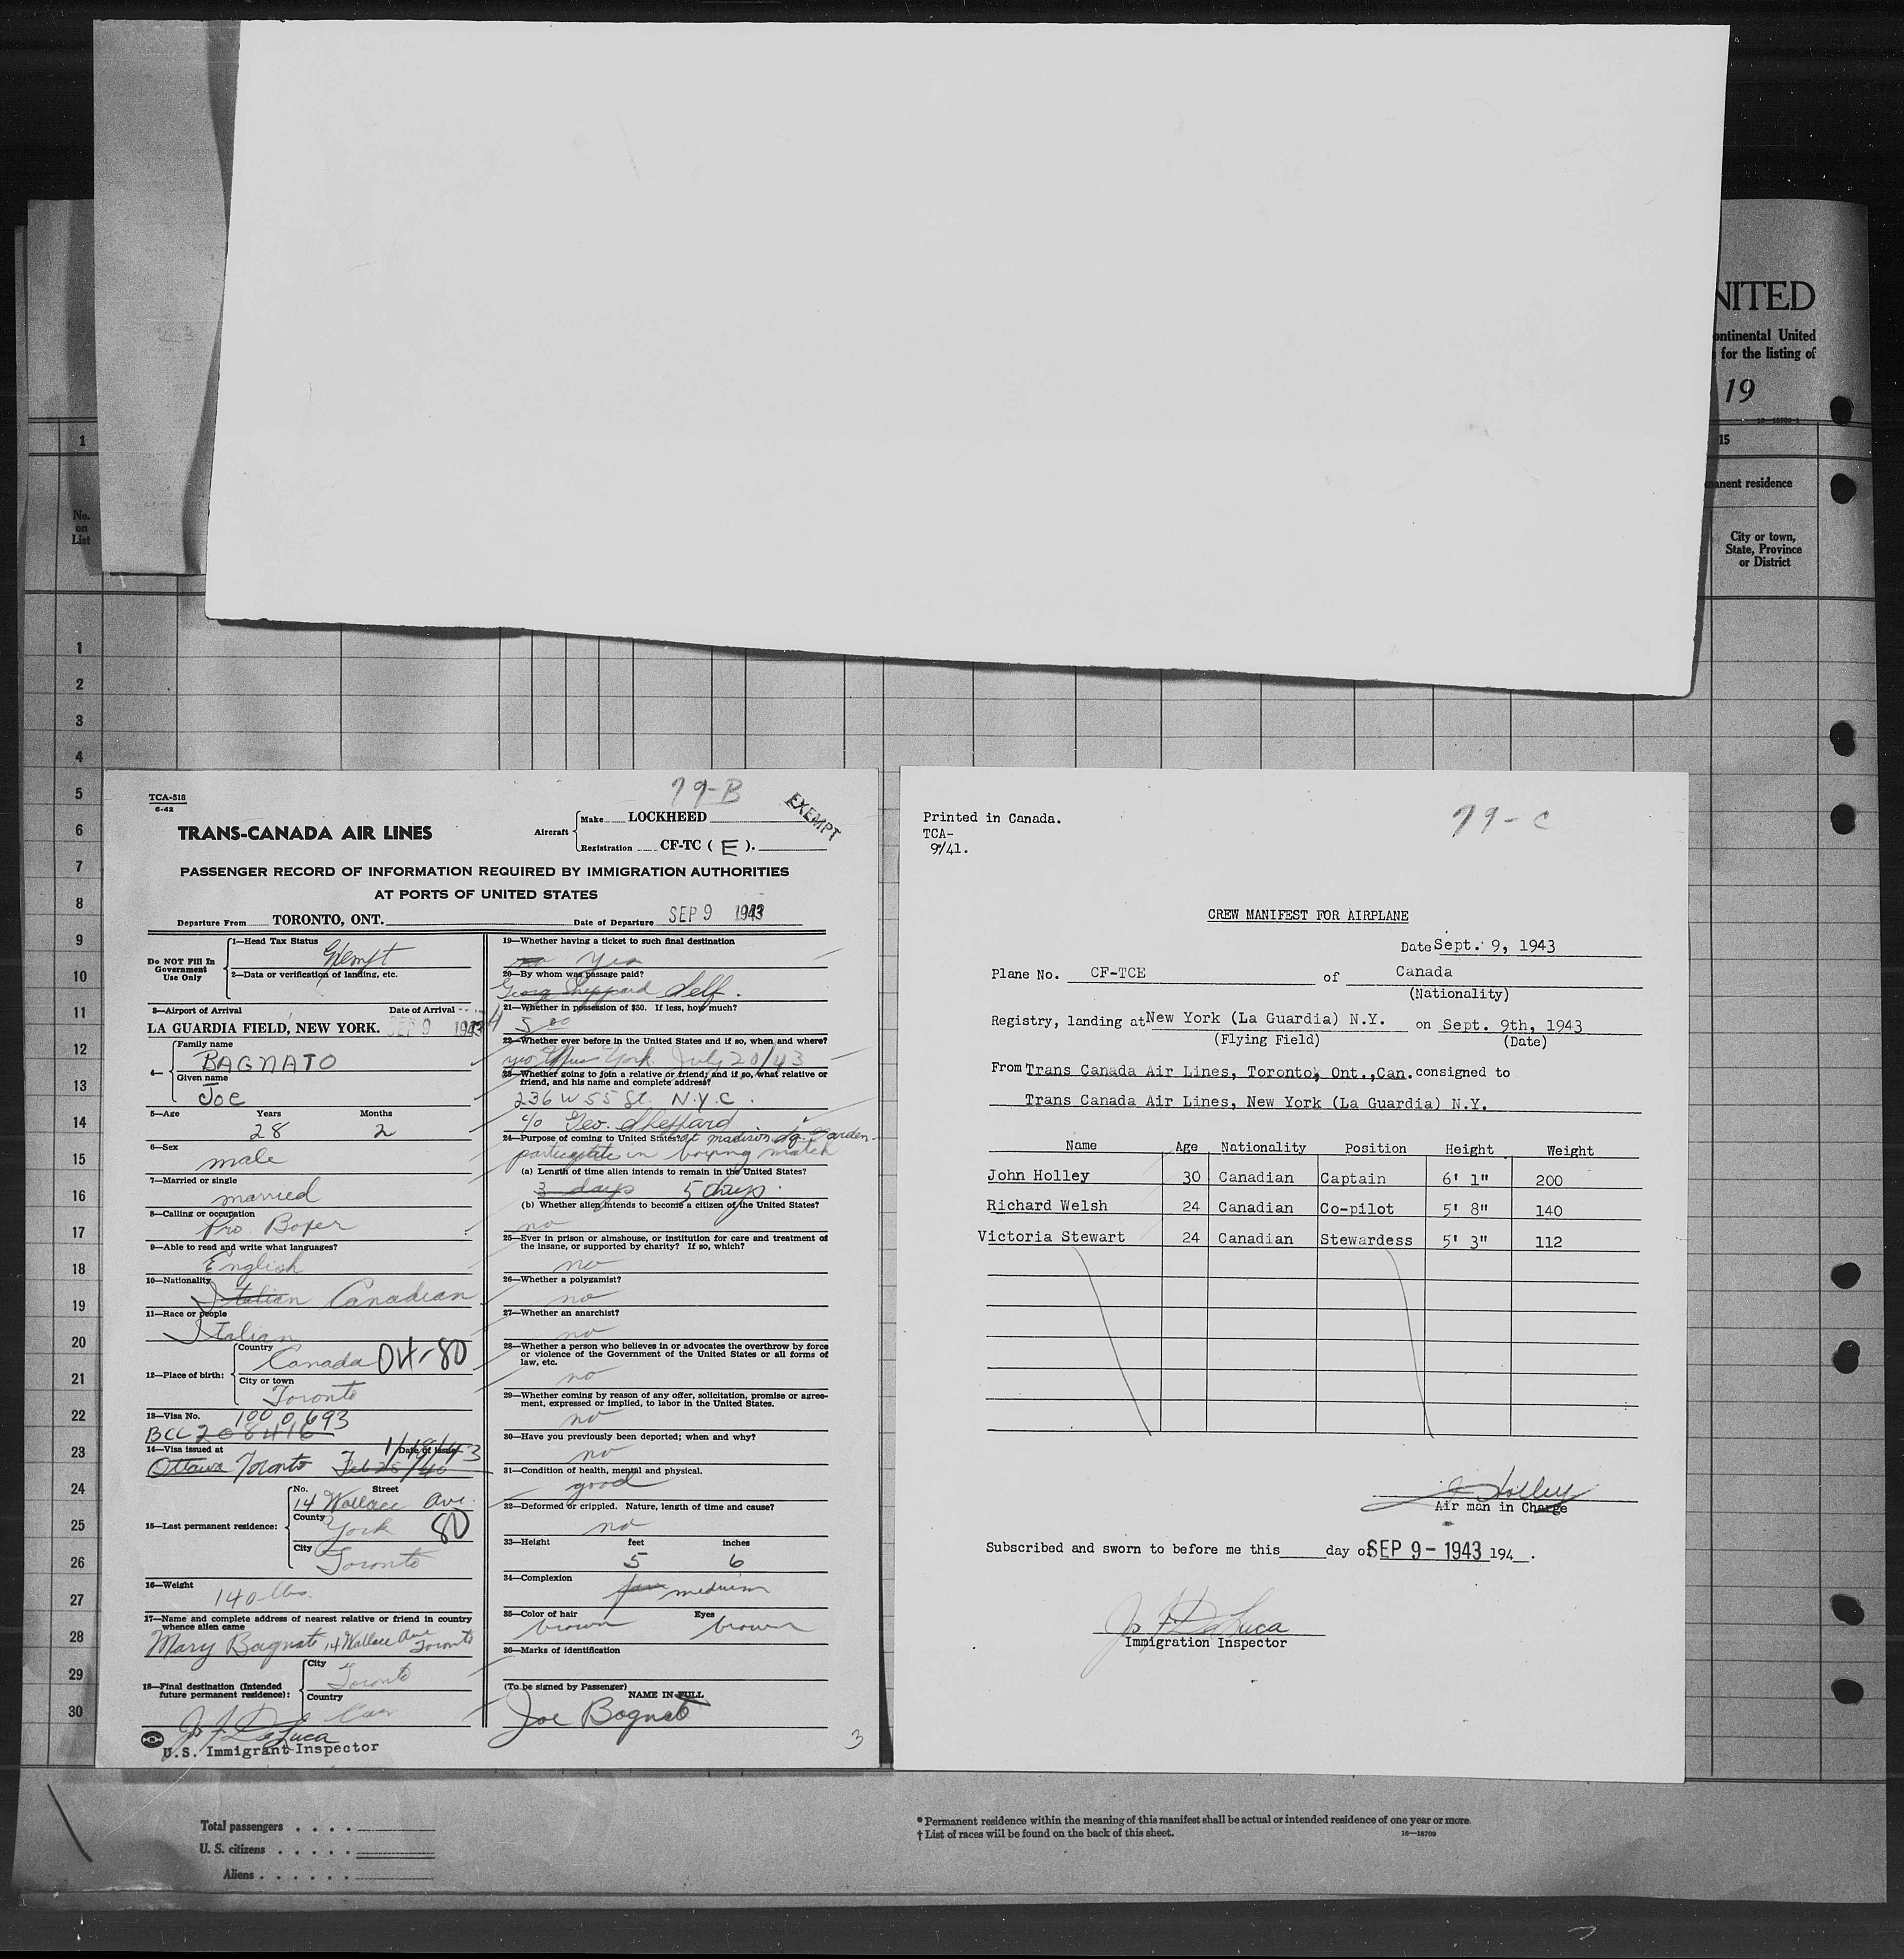 NITED
ontinental United
for the listing of
19
15
manent residence
City or town,
State, Province
or District
1
No.
on
List
1
2
3
4
5
6
7
8
9
10
11
12
13
14
15
16
17
18
19
20
21
22
23
24
25
26
27
28
29
30
79-B
EXEMPT
TCA-518
6-42
TRANS-CANADA AIR LINES
Aircraft
Make LOCKHEED
Registration CF-TC ( E ).
PASSENGER RECORD OF INFORMATION REQUIRED BY IMMIGRATION AUTHORITIES
AT PORTS OF UNITED STATES
Departure From TORONTO, ONT. Date of Departure SEP 9 1943
Do NOT Fill In
Government
Use Only
1—Head Tax Status Exempt
2—Data or verification of landing, etc.
3—Airport of Arrival Date of Arrival
LA GUARDIA FIELD, NEW YORK. SEP 9 1943
4—
Family name
BAGNATO
Given name
Joe
5—Age Years Months
28 2
6—Sex
male
7—Married or single
married
8—Calling or occupation
Pro. Boxer
9—Able to read and write what languages?
English
10—Nationality
Italian Canadian
11—Race or people
Italian
12—Place of birth:
Country
Canada 04-80
City or town
Toronto
13—Visa No. 1000693
BCC 208416
14—Visa issued at Date of issue 1/19/43
Ottawa Toronto Feb 28/40
15—Last permanent residence:
No. Street
14 Wallace Ave.
County
York 80
City
Toronto
16—Weight
140 lbs.
17—Name and complete address of nearest relative or friend in country
whence alien came
Mary Bagnato, 14 Wallace Ave Toronto
18—Final destination (Intended
future permanent residence):
City
Toronto
Country
Can
Jo F De Luca
U.S. Immigrant Inspector
19—Whether having a ticket to such final destination
no yes
20—By whom was passage paid?
Georg Sheppard Self.
21—Whether in possession of $50. If less, how much?
5 00
22—Whether ever before in the United States and if so, when and where?
yes New York July 20/43
23—Whether going to join a relative or friend; and if so, what relative or
friend, and his name and complete address?
236 W 55 St. N.Y.C.
c/o Geo. Sheppard
24—Purpose of coming to United States? at madison sq. Garden.
participate in boxing match
(a) Length of time alien intends to remain in the United States?
3 days 5 days.
(b) Whether alien intends to become a citizen of the United States?
no
25—Ever in prison or almshouse, or institution for care and treatment of
the insane, or supported by charity? If so, which?
no
26—Whether a polygamist?
no
27—Whether an anarchist?
no
28—Whether a person who believes in or advocates the overthrow by force
or violence of the Government of the United States or all forms of
law, etc.
no
29—Whether coming by reason of any offer, solicitation, promise or agree-
ment, expressed or implied, to labor in the United States.
no
30—Have you previously been deported; when and why?
no
31—Condition of health, mental and physical.
good
32—Deformed or crippled. Nature, length of time and cause?
no
33—Height feet inches
5 6
34—Complexion
fair medium
35—Color of hair Eyes
brown brown
36—Marks of identification
(To be signed by Passenger)
NAME IN FULL
Joe Bagnato
3
79-C
Printed in Canada.
TCA-
9/41.
CREW MANIFEST FOR AIRPLANE
Date Sept. 9, 1943
Plane No. CF-TCE of Canada
(Nationality)
Registry, landing at New York (La Guardia) N.Y. on Sept. 9th, 1943
(Flying Field) (Date)
From Trans Canada Air Lines, Toronto, Ont.,Can. consigned to
Trans Canada Air Lines, New York (La Guardia) N.Y.
Name Age Nationality Position Height Weight
John Holley 30 Canadian Captain 6' 1" 200
Richard Welsh 24 Canadian Co-pilot 5' 8" 140
Victoria Stewart 24 Canadian Stewardess 5' 3" 112
J Holley
Air man in Charge
Subscribed and sworn to before me this day of SEP 9 - 1943 194 .
Jo F De Luca
Immigration Inspector
Total passengers . . . .
U. S. citizens . . . . .
Aliens . . . . . .
* Permanent residence within the meaning of this manifest shall be actual or intended residence of one year or more.
† List of races will be found on the back of this sheet. 16—18709